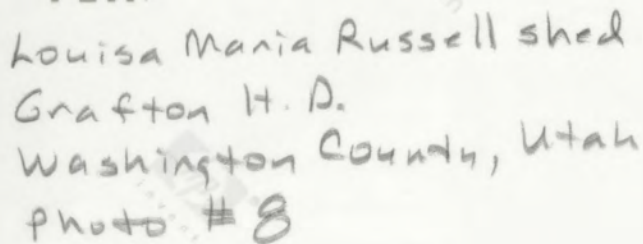 Louisa Maria Russell shed
Grafton H.D.
Washington County, Utah
Photo # 8